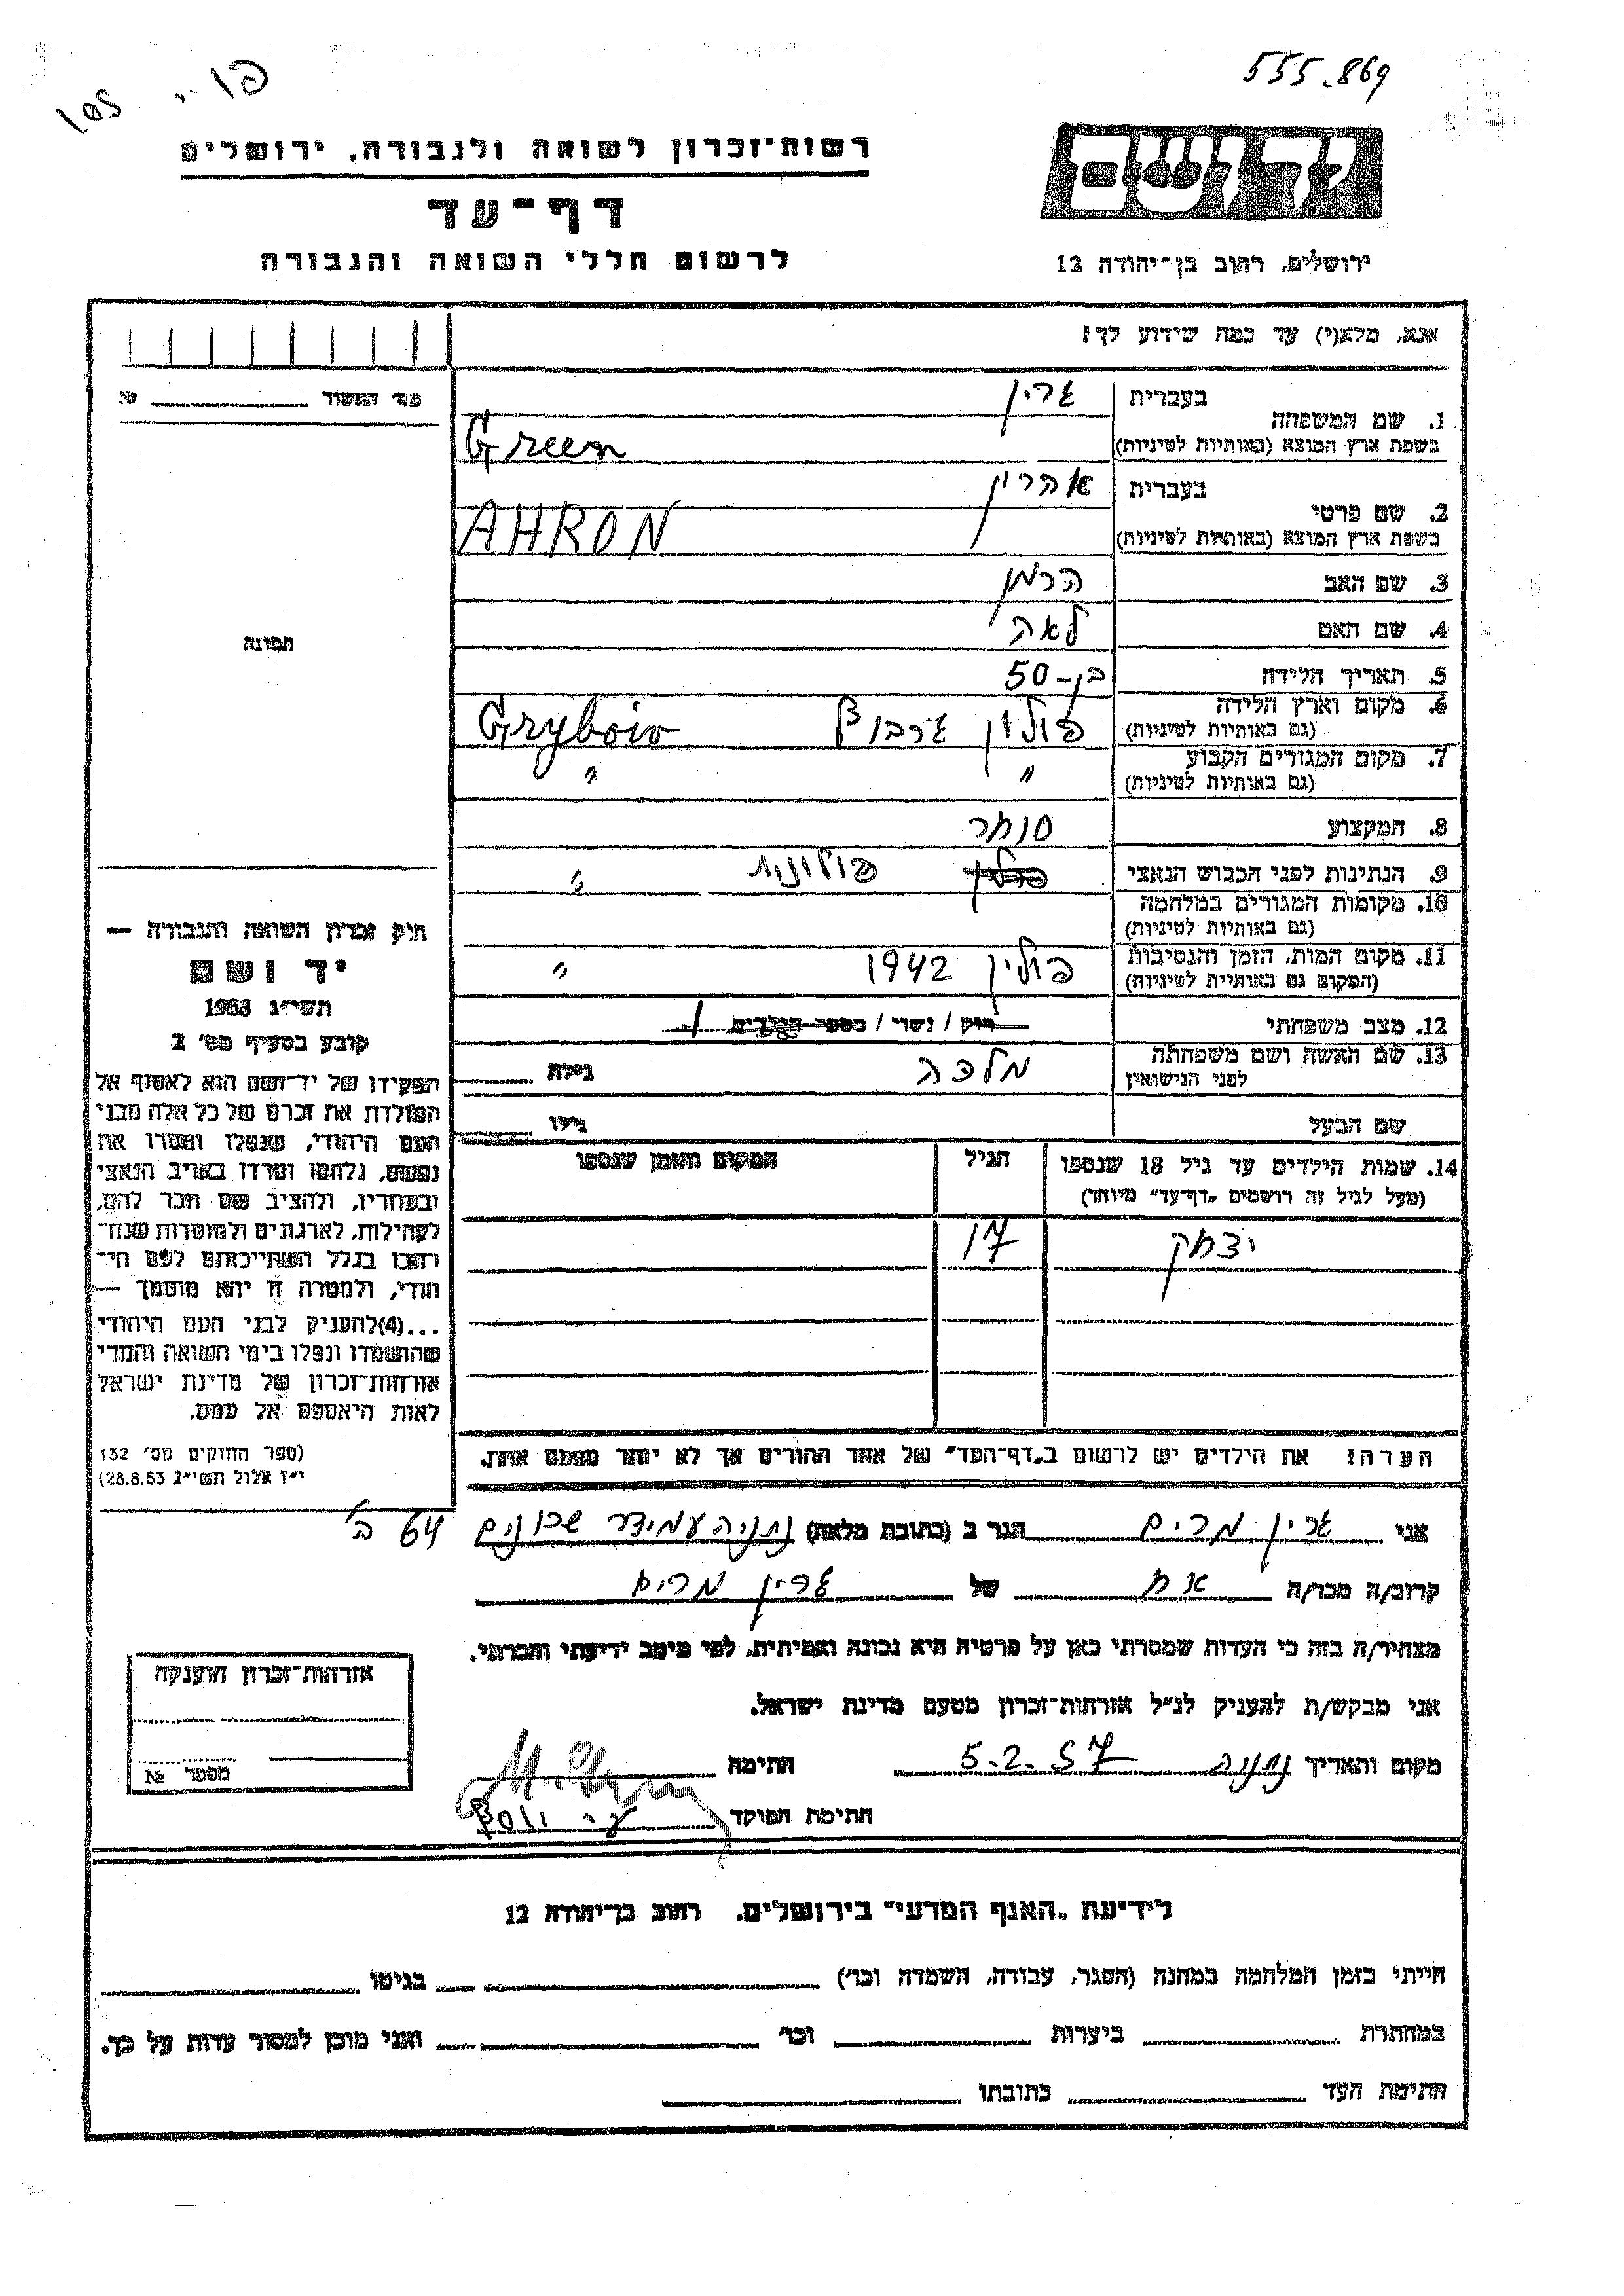 555.869
יד ושם
ירושלים, רחוב בן־יהודה 12
רשות־זכרון לשואה ולגבורה, ירושלים
דף־עד
לרשום חללי השואה והגבורה
אנא, מלא(י) עד כמה שידוע לך!
1. שם המשפחה
בעברית גרין
בשפת ארץ המוצא (באותיות לטיניות) Green
2. שם פרטי
בעברית אהרון
בשפת ארץ המוצא (באותיות לטיניות) AHRON
3. שם האב הרמן
4. שם האם לאה
5. תאריך הלידה בן-50
6. מקום וארץ הלידה
(גם באותיות לטיניות) פולין גרבוב Grybow
7. מקום המגורים הקבוע
(גם באותיות לטיניות) " "
8. המקצוע סוחר
9. הנתינות לפני הכבוש הנאצי פולין פולונית "
10. מקומות המגורים במלחמה
(גם באותיות לטיניות)
11. מקום המות, הזמן והנסיבות
(המקום גם באותיית לטיניות) פולין 1942 "
12. מצב משפחתי רווק / נשוי / מספר הילדים 1
13. שם האשה ושם משפחתה
לפני הנישואין מלכה גילה
שם הבעל גילו
14. שמות הילדים עד גיל 18 שנספו
(מעל לגיל זה רושמים „דף־עד” מיוחד)
הגיל
המקום והזמן שנספו
יצחק 17
הערה! את הילדים יש לרשום ב„דף־העד” של אחד ההורים אך לא יותר מפעם אחת.
№
תמונה
חוק זכרון השואה והגבורה —
יד ושם
תשי״ג 1953
קובע בסעיף מס׳ 2
תפקידו של יד־ושם הוא לאסוף אל
המולדת את זכרם של כל אלה מבני
העם היהודי, שנפלו ומסרו את
נפשם, נלחמו ומרדו באויב הנאצי
ובעוזריו, ולהציב שם וזכר להם,
לקהילות, לארגונים ולמוסדות שנח־
רבו בגלל השתייכותם לעם הי־
הודי, ולמטרה זו יהא מוסמך —
...(4)להעניק לבני העם היהודי
שהושמדו ונפלו בימי השואה והמרי
אזרחות־זכרון של מדינת ישראל
לאות היאספם אל עמם.
(ספר החוקים מס׳ 132
י״ז אלול תשי״ג 28.8.53)
אני גרין מרים הגר ב (כתובת מלאה) נתניה עמידר שכונים 64 ב'
קרוב/ה מכר/ה אח של גרין מרים
מצהיר/ה בזה כי העדות שמסרתי כאן על פרטיה היא נכונה ואמיתית, לפי מיטב ידיעתי והכרתי.
אני מבקש/ת להעניק לנ״ל אזרחות־זכרון מטעם מדינת ישראל.
מקום ותאריך נתניה 5.2.57 חתימה
חתימת הפוקד
אזרחות־זכרון הוענקה
מספר №
לידיעת „האגף המדעי” בירושלים. רחוב בן־יהודה 12
הייתי בזמן המלחמה במחנה (הסגר, עבודה, השמדה וכו׳) בגיטו
במחתרת ביערות וכו׳ ואני מוכן למסור עדות על כך.
חתימת העד כתובתו